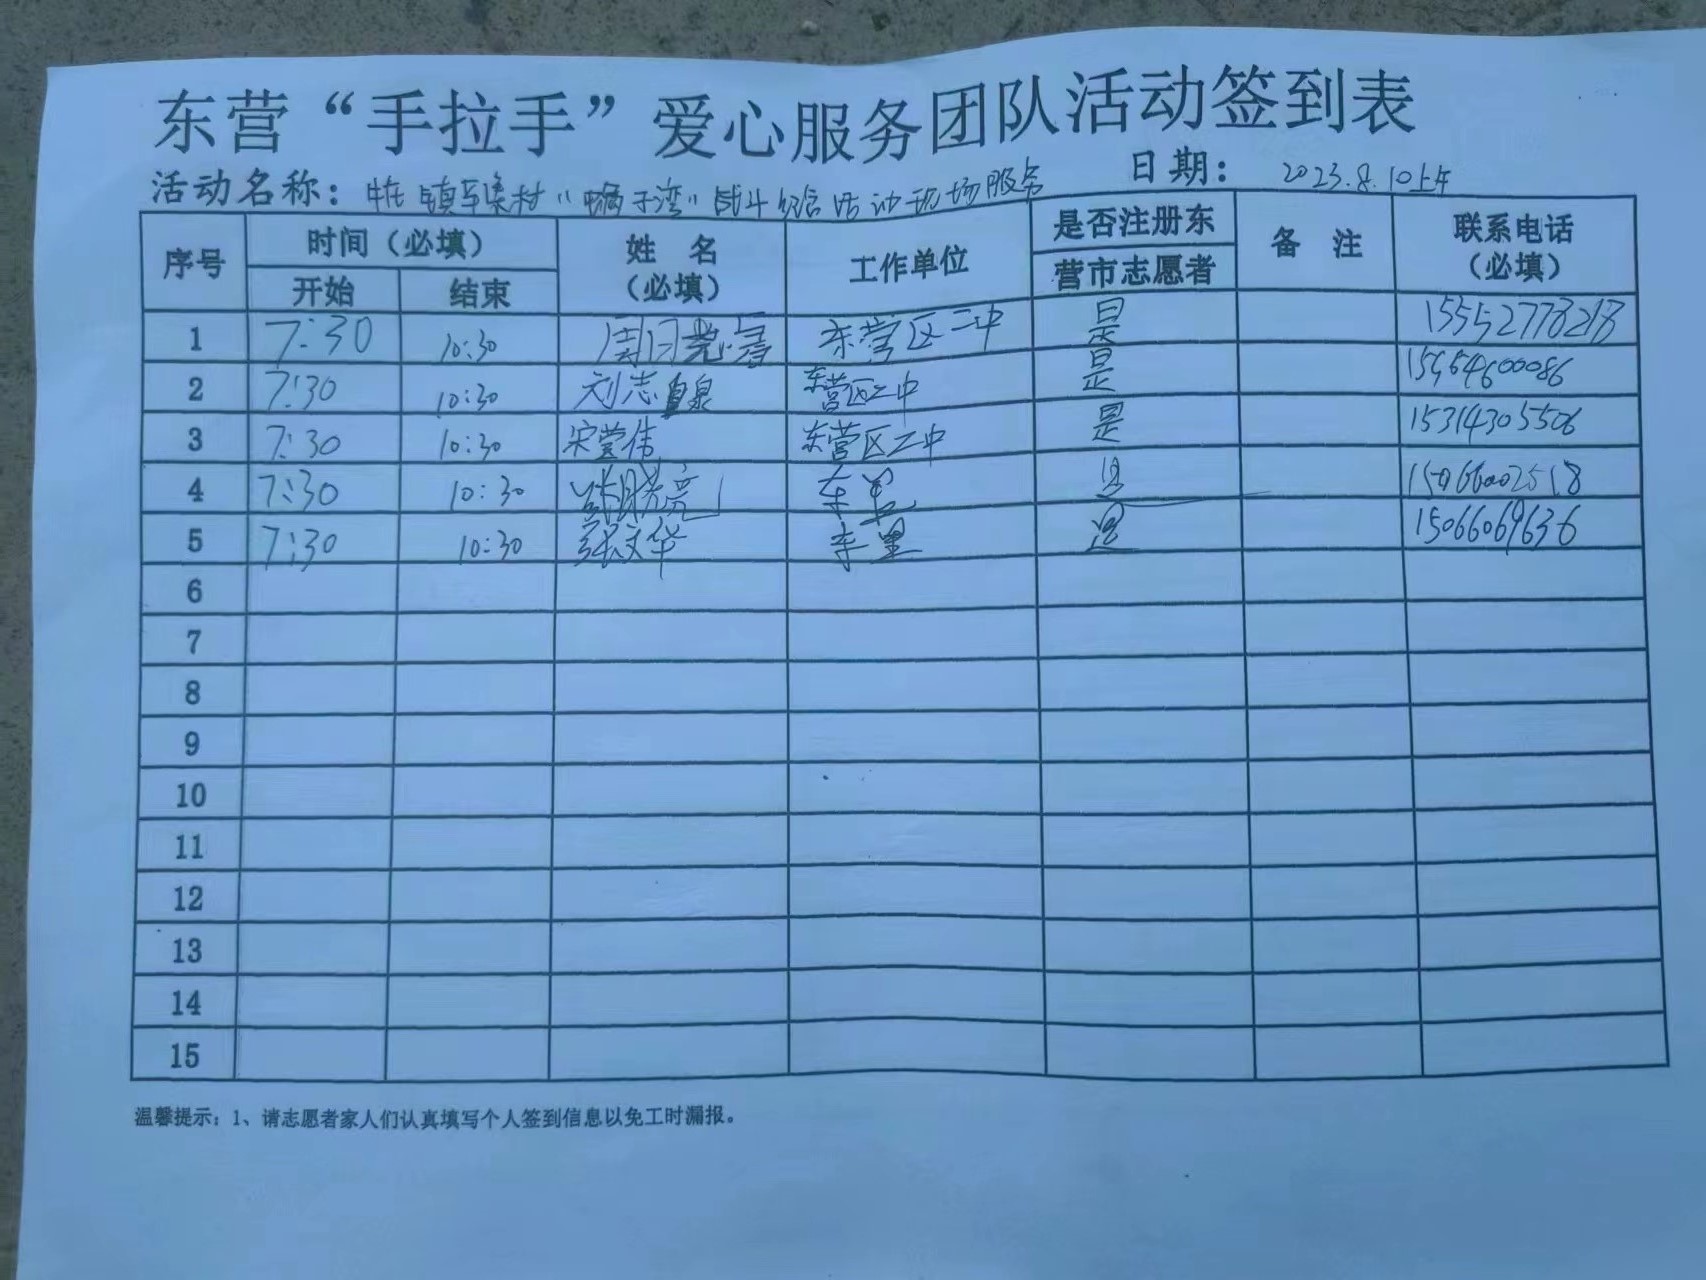 东营“手拉手”爱心服务团队活动签到表
活动名称： 镇车集村“蝎子湾”战斗 活动现场服务 日期： 2023.8.10上午
序号 时间（必填） 姓 名（必填） 工作单位 是否注册东营市志愿者 备 注 联系电话（必填）
开始 结束
1 7:30 10:30 东营区二中 是 15552778218
2 7:30 10:30 刘志 东营区二中 是 15564600086
3 7:30 10:30 宋莹伟 东营区二中 是 15314305506
4 7:30 10:30 张晓亮 是 15066002518
5 7:30 10:30 张文华 是 15066069636
6
7
8
9
10
11
12
13
14
15
温馨提示：1、请志愿者家人们认真填写个人签到信息以免工时漏报。